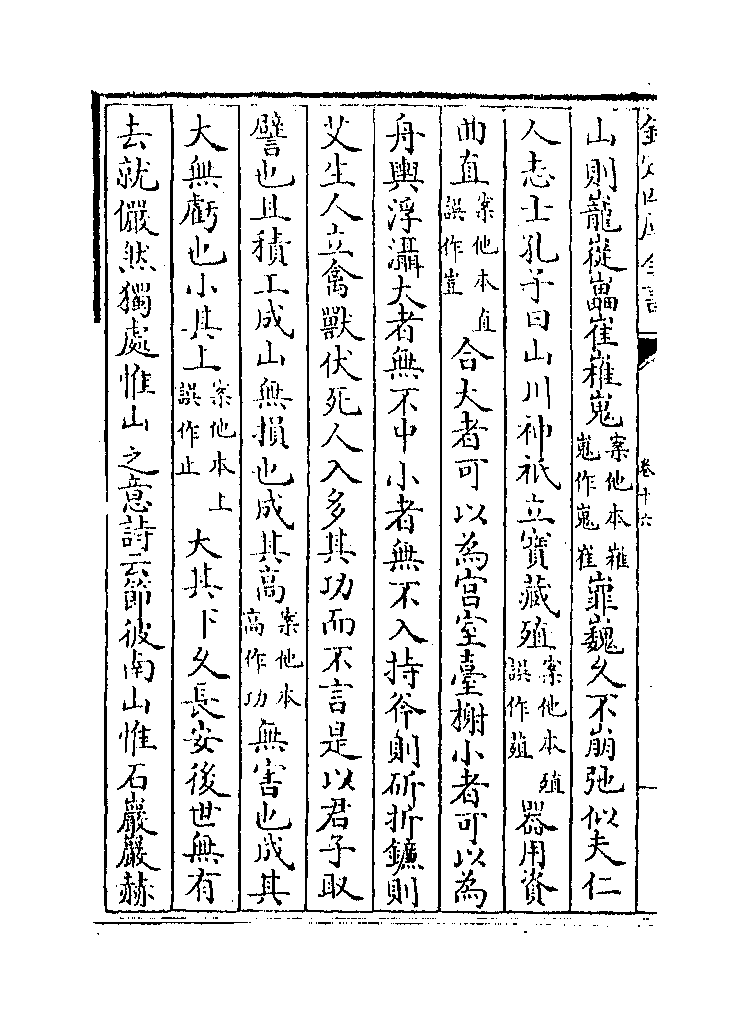 欽定四庫全書
卷十六
山則巃嵸㠥崔嶊嵬案他本嶊嵬作嵬崔嶵巍久不崩弛似夫仁
人志士孔子曰山川神祇立寶藏殖案他本殖誤作器用資
曲直案他本直誤作豈合大者可以為宫室臺榭小者可以為
舟輿浮灄大者無不中小者無不入持斧則斫折鑣則
艾生人立禽獸伏死人入多其功而不言是以君子取
譬也且積工成山無損也成其高案他本高作功無害也成其
大無虧也小其上案他本上誤作止大其下久長安後世無有
去就儼然獨處惟山之意詩云節彼南山惟石巖巖赫